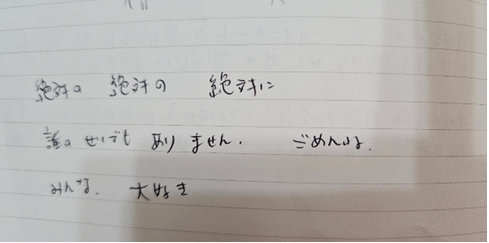 絶対の 絶対の 絶対に
誰のせいでも ありません。 ごめんね。
みんな。 大好き